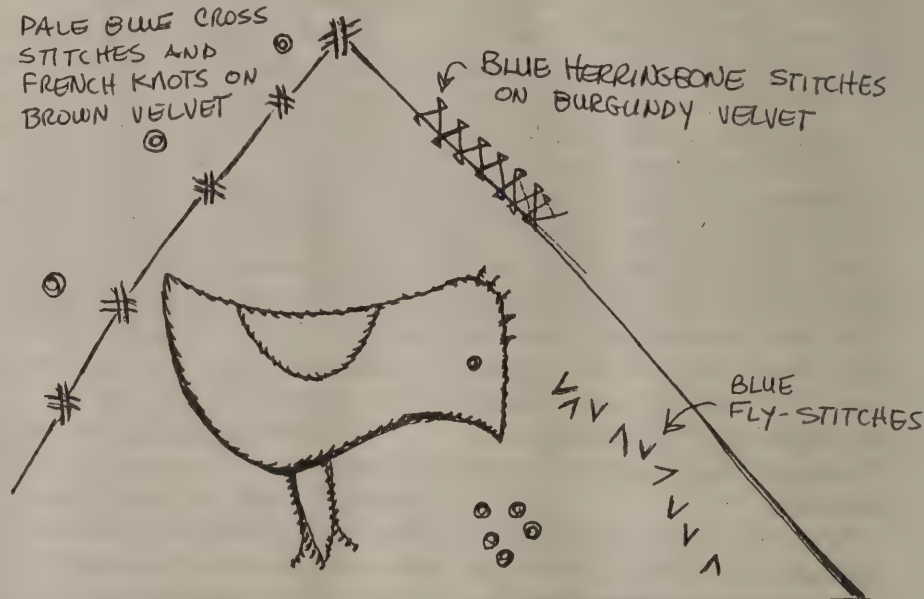 PALE BLUE CROSS
STITCHES AND
FRENCH KNOTS ON
BROWN VELVET
BLUE HERRINGBONE STITCHES
ON BURGUNDY VELVET
BLUE
FLY-STITCHES